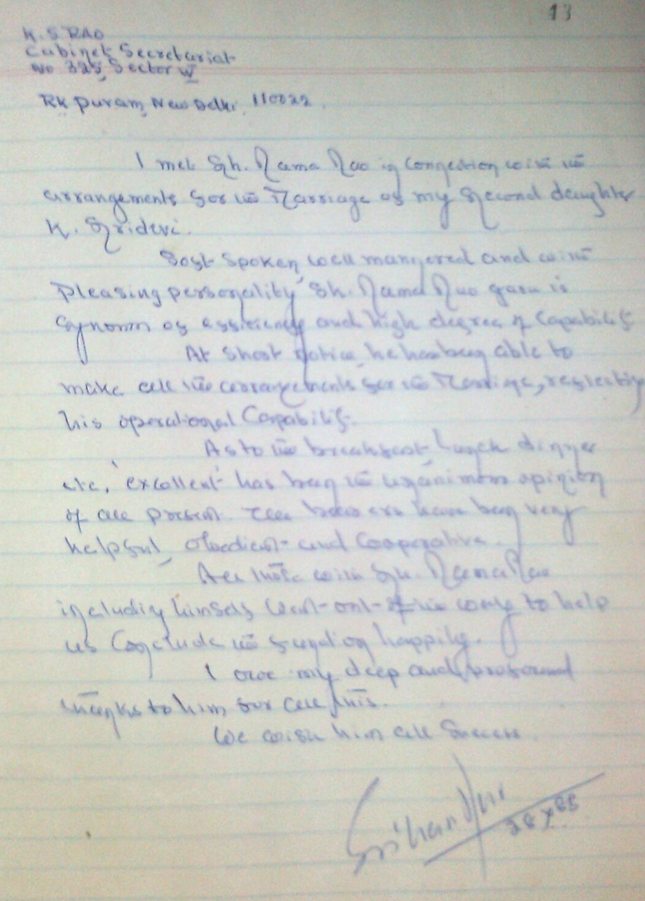 13
K. S RAO
Cabinet Secretariat
No 325, Sector IV
RK Puram, New Delhi. 110022.
I met Sh. Rama Rao in connection with the
arrangements for the Marriage of my Second daughter
K. Sridevi.
Soft spoken, well mannered and with
pleasing personality Sh. Rama Rao garu is
synonym of efficiency and high degree of Capability
At short notice, he has been able to
make all the arrangements for the Marriage, reflecting
his operational Capability.
As to the breakfast, lunch dinner
etc, 'excellent' has been the unanimous opinion
of all present. have been very
helpful, obedient and Cooperative.
All those with Sh. Rama Rao
including himself went out of the way to help
us Conclude the function happily.
I owe my deep and profound
thanks to him for all this.
We wish him all Success.